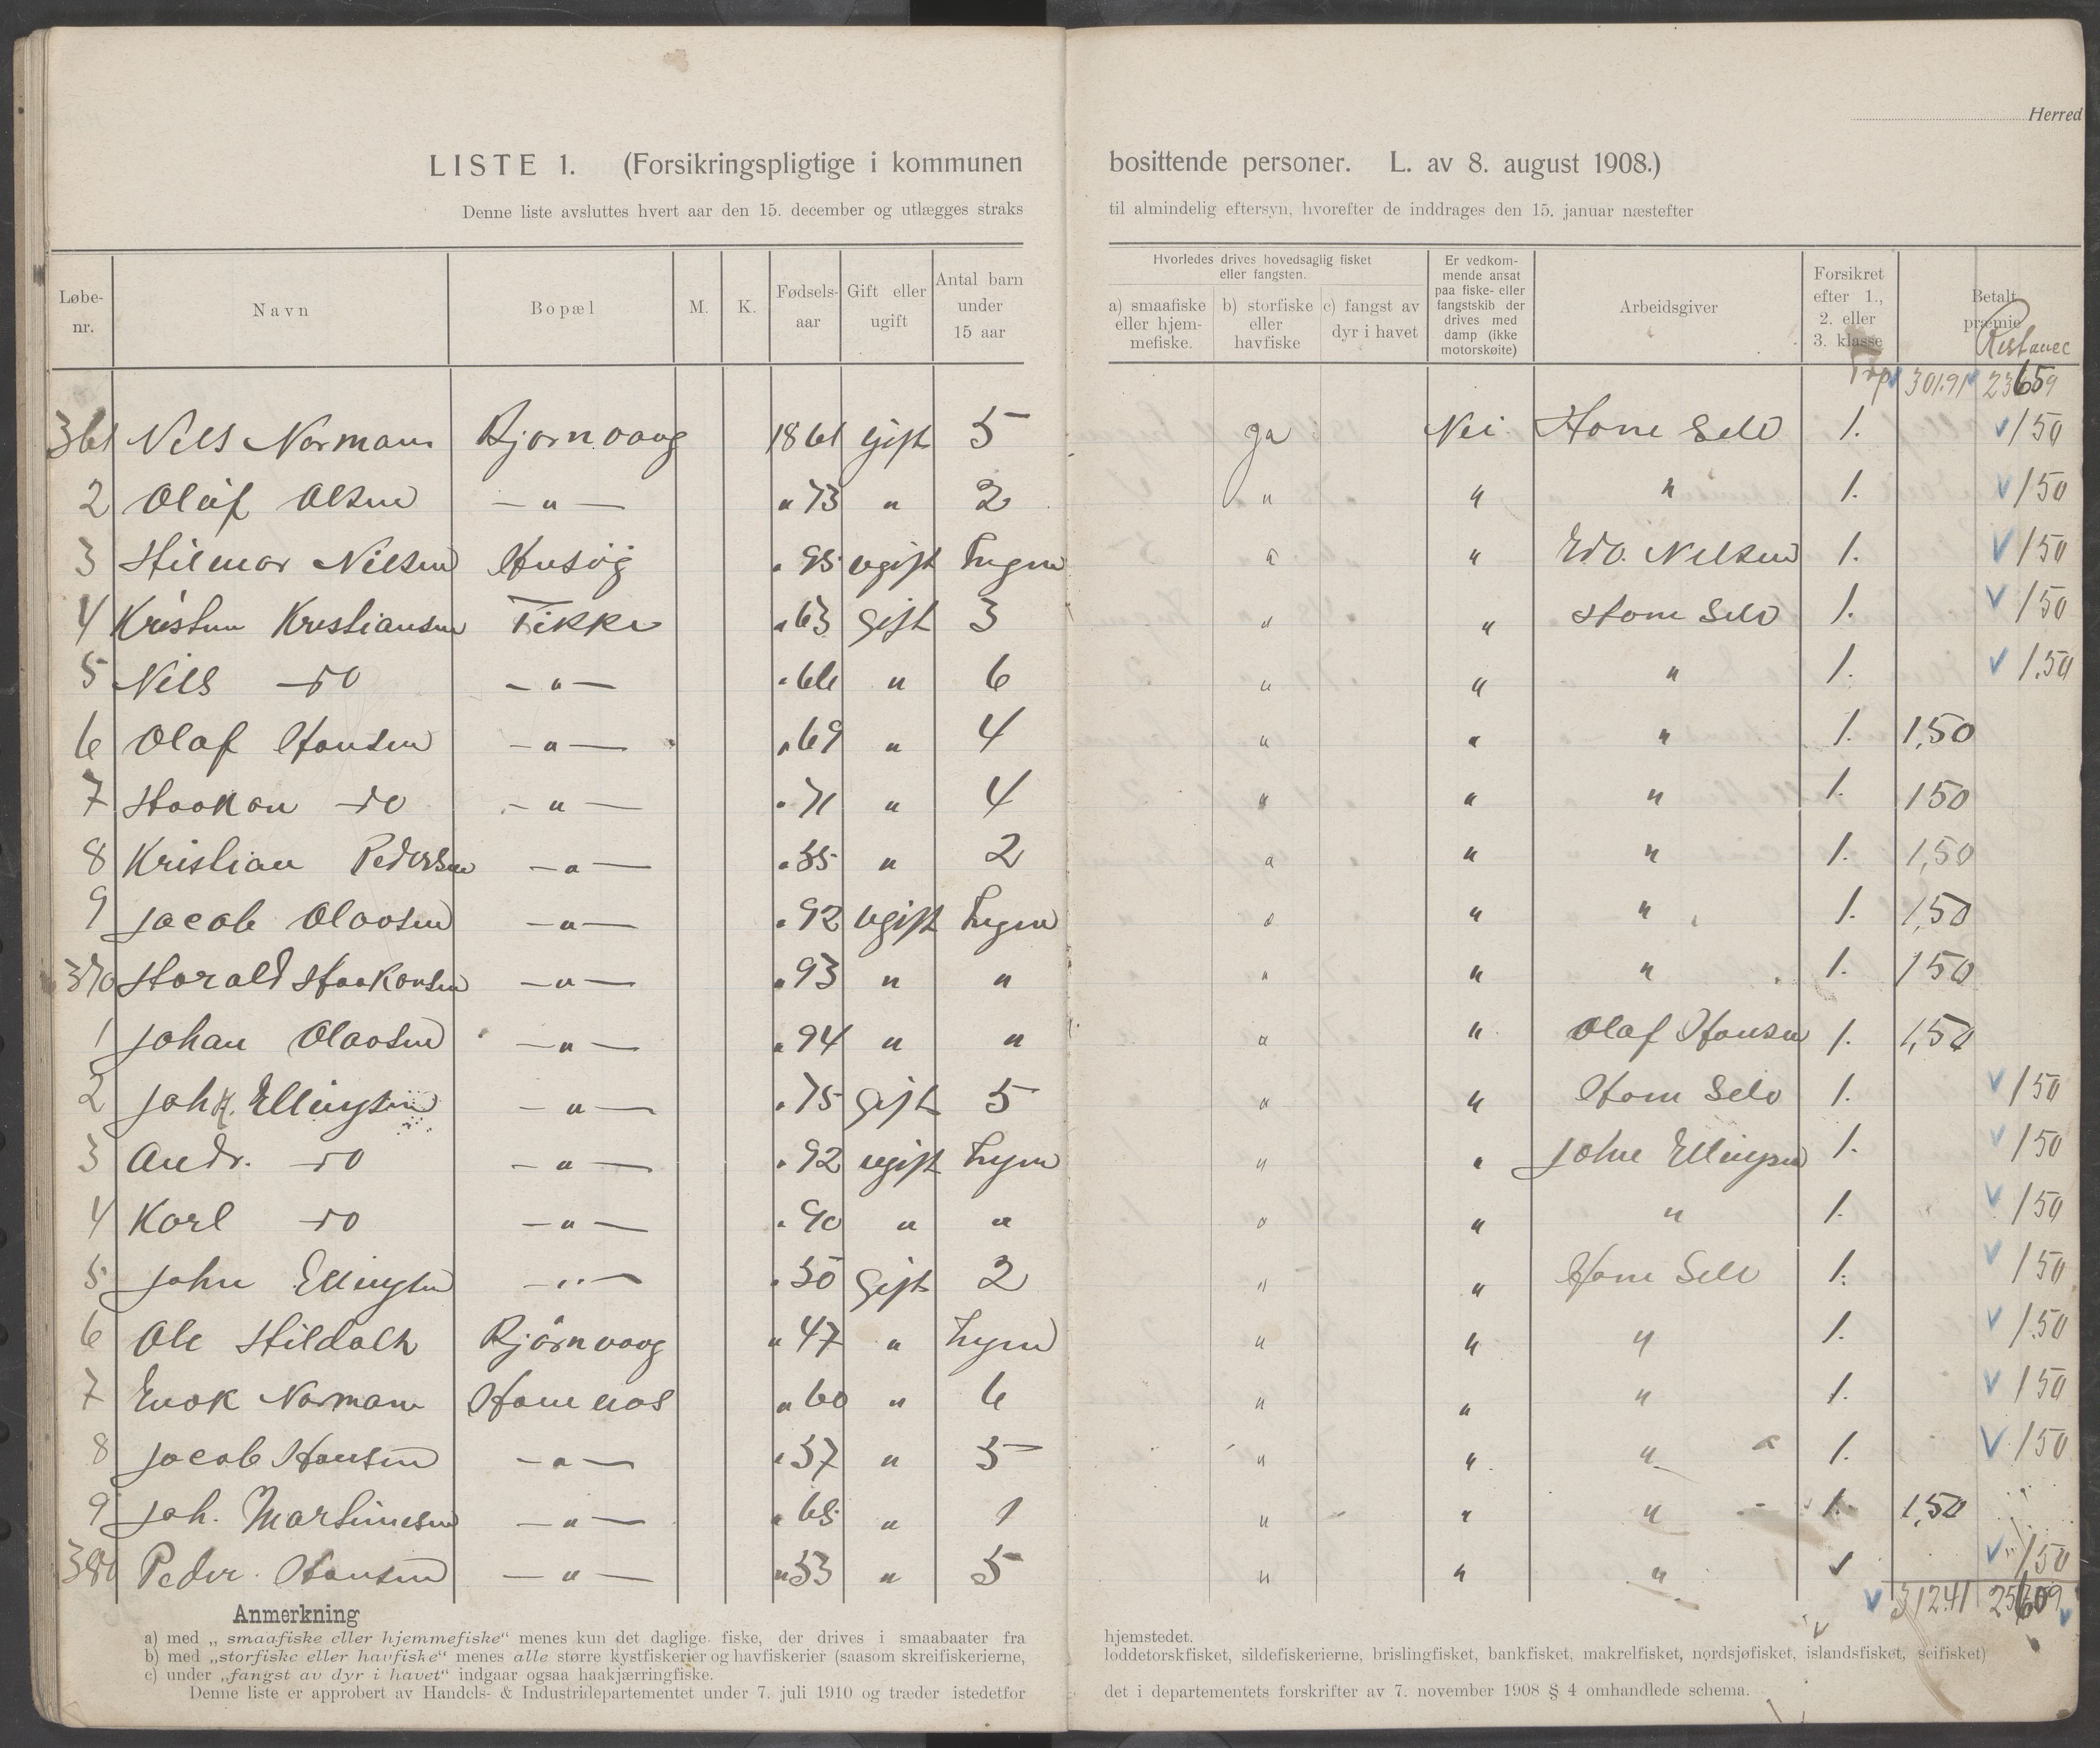 Herred
LISTE 1. (Forsikringspligtige i kommunen bosittende personer. L. av 8. august 1908.)
Denne liste avsluttes hvert aar den 15. december og utlægges straks til almindelig eftersyn, hvorefter de inddrages den 15. januar næstefter
Løbe-nr. Navn Bopæl M. K. Fødsels-aar Gift eller ugift Antal barn under 15 aar Hvorledes drives hovedsaglig fisket eller fangsten. a) smaafiske eller hjem-mefiske. b) storfiske eller havfiske c) fangst av dyr i havet Er vedkom-mende ansat paa fiske- eller fangstskib der drives med damp (ikke motorskøite) Arbeidsgiver Forsikret efter 1., 2. eller 3. klasse Betalt præmie Restance
301.91 23659
361 Nils Normann Bjørnvaag 1861 gift 5 ja Nei Ham Selv 1. 150
2 Olaf Olsen —"— " 73 " 2 " " " 1. 150
3 Hilmar Nilsen Husøy " 95 ugift Ingen " " Edv. Nilsen 1. 150
4 Kristen Kristiansen Tikke " 63 gift 3 " " Ham Selv 1. 150
5 Nils do —"— " 66 " 6 " " " 1. 1.50
6 Olaf Hansen —"— " 69 " 4 " " " 1. 1,50
7 Haakon do —"— " 71 " 4 " " " 1. 150
8 Kristian Pedersen —"— " 55 " 2 " " " 1. 1,50
9 Jacob Olavsen —"— " 92 ugift Ingen " " " 1. 1,50
370 Harald Haakonsen —"— " 93 " " " " " 1. 150
1 Johan Olavsen —"— " 94 " " " " Olaf Hansen 1. 1,50
2 Joh. Ellingsen —"— " 75 gift 5 " " Ham Selv 1. 150
3 Andr. do —"— " 92 ugift Ingen " " John Ellingsen 1. 150
4 Karl do —"— " 90 " " " " " 1. 150
5 John Ellingsen —"— " 50 gift 2 " " Ham Selv 1. 150
6 Ole Hildalh Bjørnvaag " 47 " Ingen " " " 1. 1.50
7 Enok Normann Hamnaas " 60 " 6 " " " 1. 150
8 Jacob Hansen —"— " 57 " 5 " " " 1. 150
9 Joh. Martinesen —"— " 65 " 1 " " " 1. 1,50
380 Peder Hansen —"— " 53 " 5 " " " 150
312.41 25609
Anmerkning
a) med „smaafiske eller hjemmefiske“ menes kun det daglige fiske, der drives i smaabaater fra hjemstedet.
b) med „storfiske eller havfiske“ menes alle større kystfiskerier og havfiskerier (saasom skreifiskerierne, loddetorskfisket, sildefiskerierne, brislingfisket, bankfisket, makrelfisket, nordsjøfisket, islandsfisket, seifisket)
c) under „fangst av dyr i havet“ indgaar ogsaa haakjærringfiske.
Denne liste er approbert av Handels- & Industridepartementet under 7. juli 1910 og træder istedetfor det i departementets forskrifter av 7. november 1908 § 4 omhandlede schema.